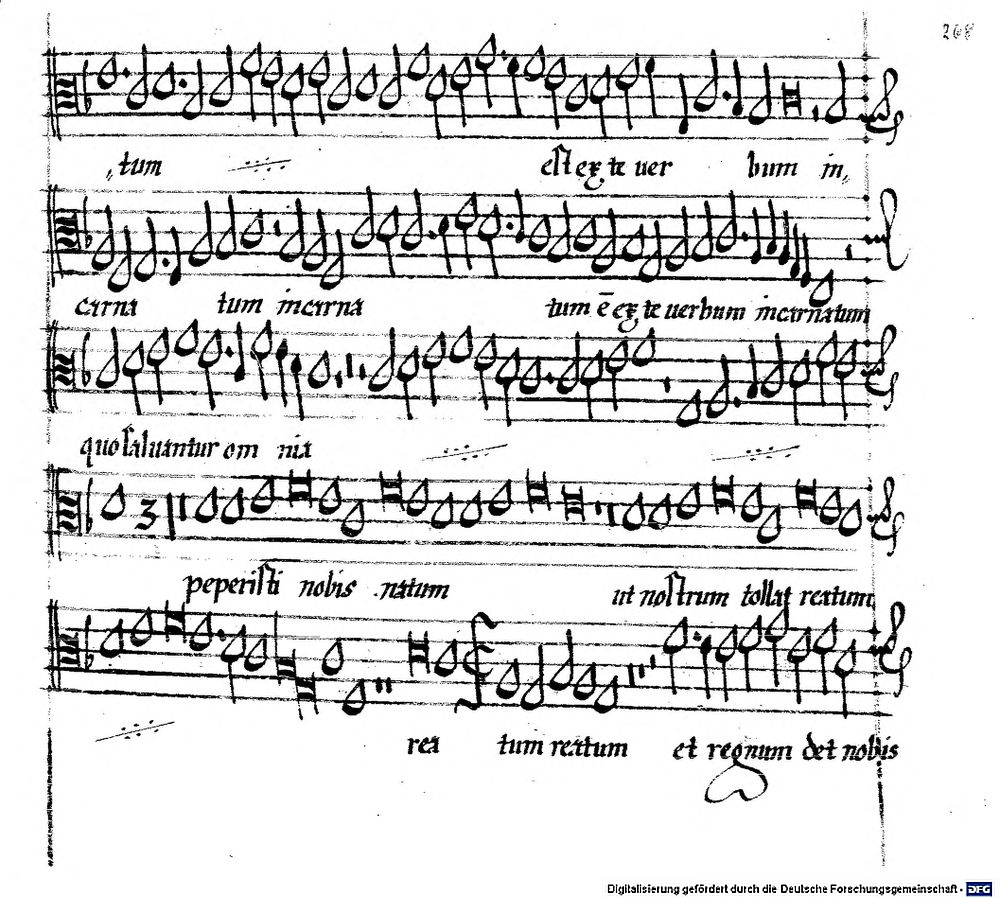 268
tum est ex te uer bum in
carna tum incarna tum ē ex te uerbum incarnatum
quo saluantur om nia
peperisti nobis natum ut nostrum tollat reatum
rea tum reatum et regnum det nobis
Digitalisierung gefördert durch die Deutsche Forschungsgemeinschaft - DFG